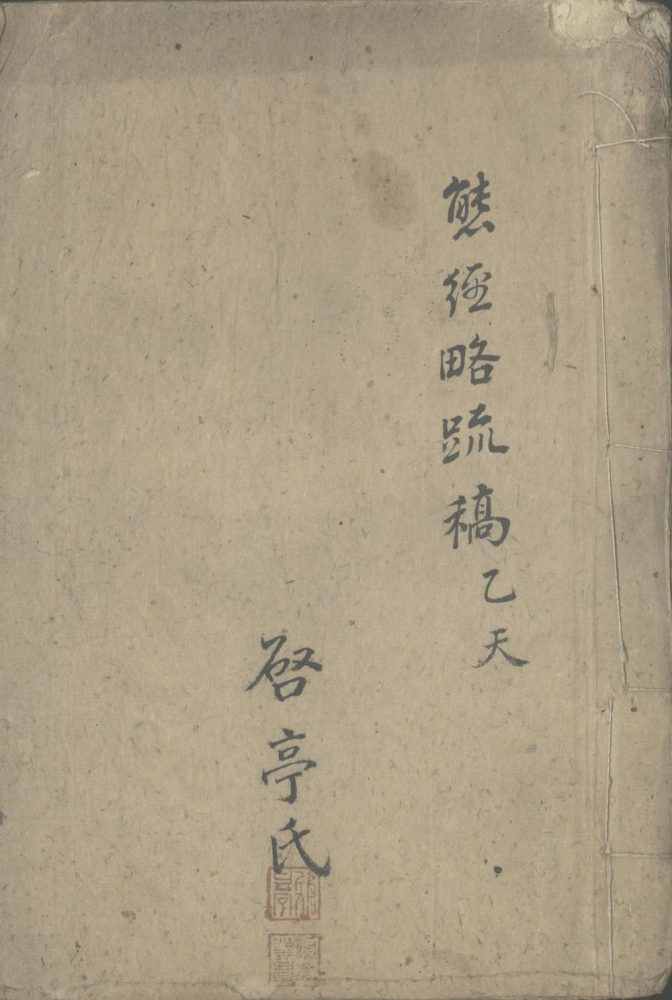 態經略疏稿乙天
啓亭氏